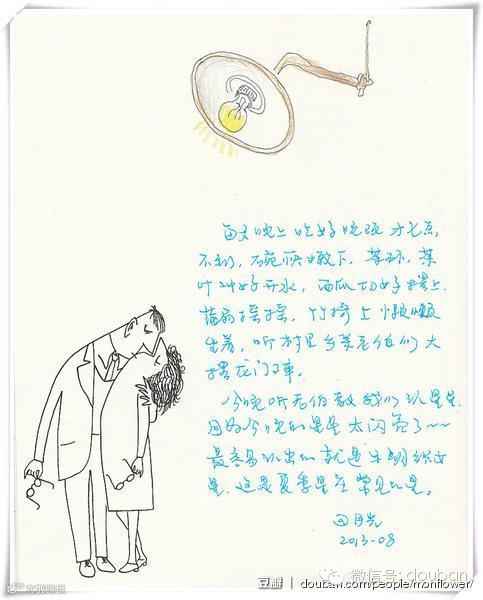 每天晚上吃好晚饭才七点
不到，碗筷
叶 好开水，西瓜切好摆上
蒲扇摇摇，竹椅上懒懒
坐着，听村里乡亲老伯们大
摆龙门阵。
今晚听老伯教我们认星星
因为今晚的星星太闪亮了～～
最容易认出的就是牛郎织女
星，这是夏季星空常见的星。
田月光
2013-08
豆瓣 douban.com/people/monflower/
微信号: douban